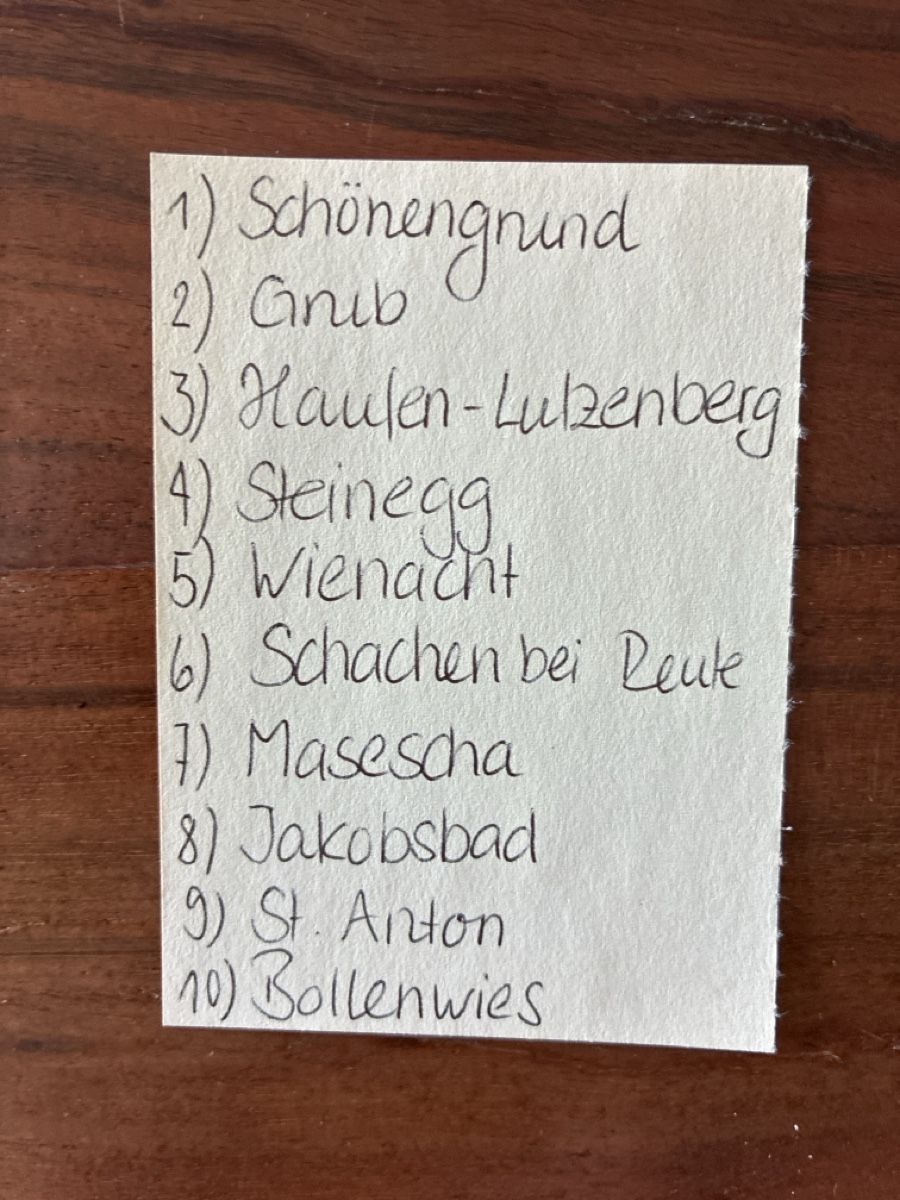 1) Schönengrund
2) Grub
3) Haufen-Lutzenberg
4) Steinegg
5) Wienacht
6) Schachen bei Reute
7) Masescha
8) Jakobsbad
9) St. Anton
10) Bollenwies